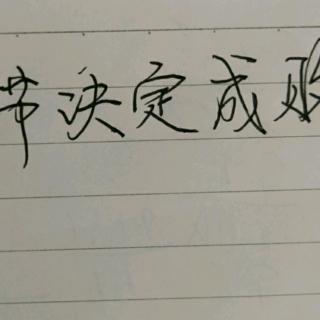 节决定成败